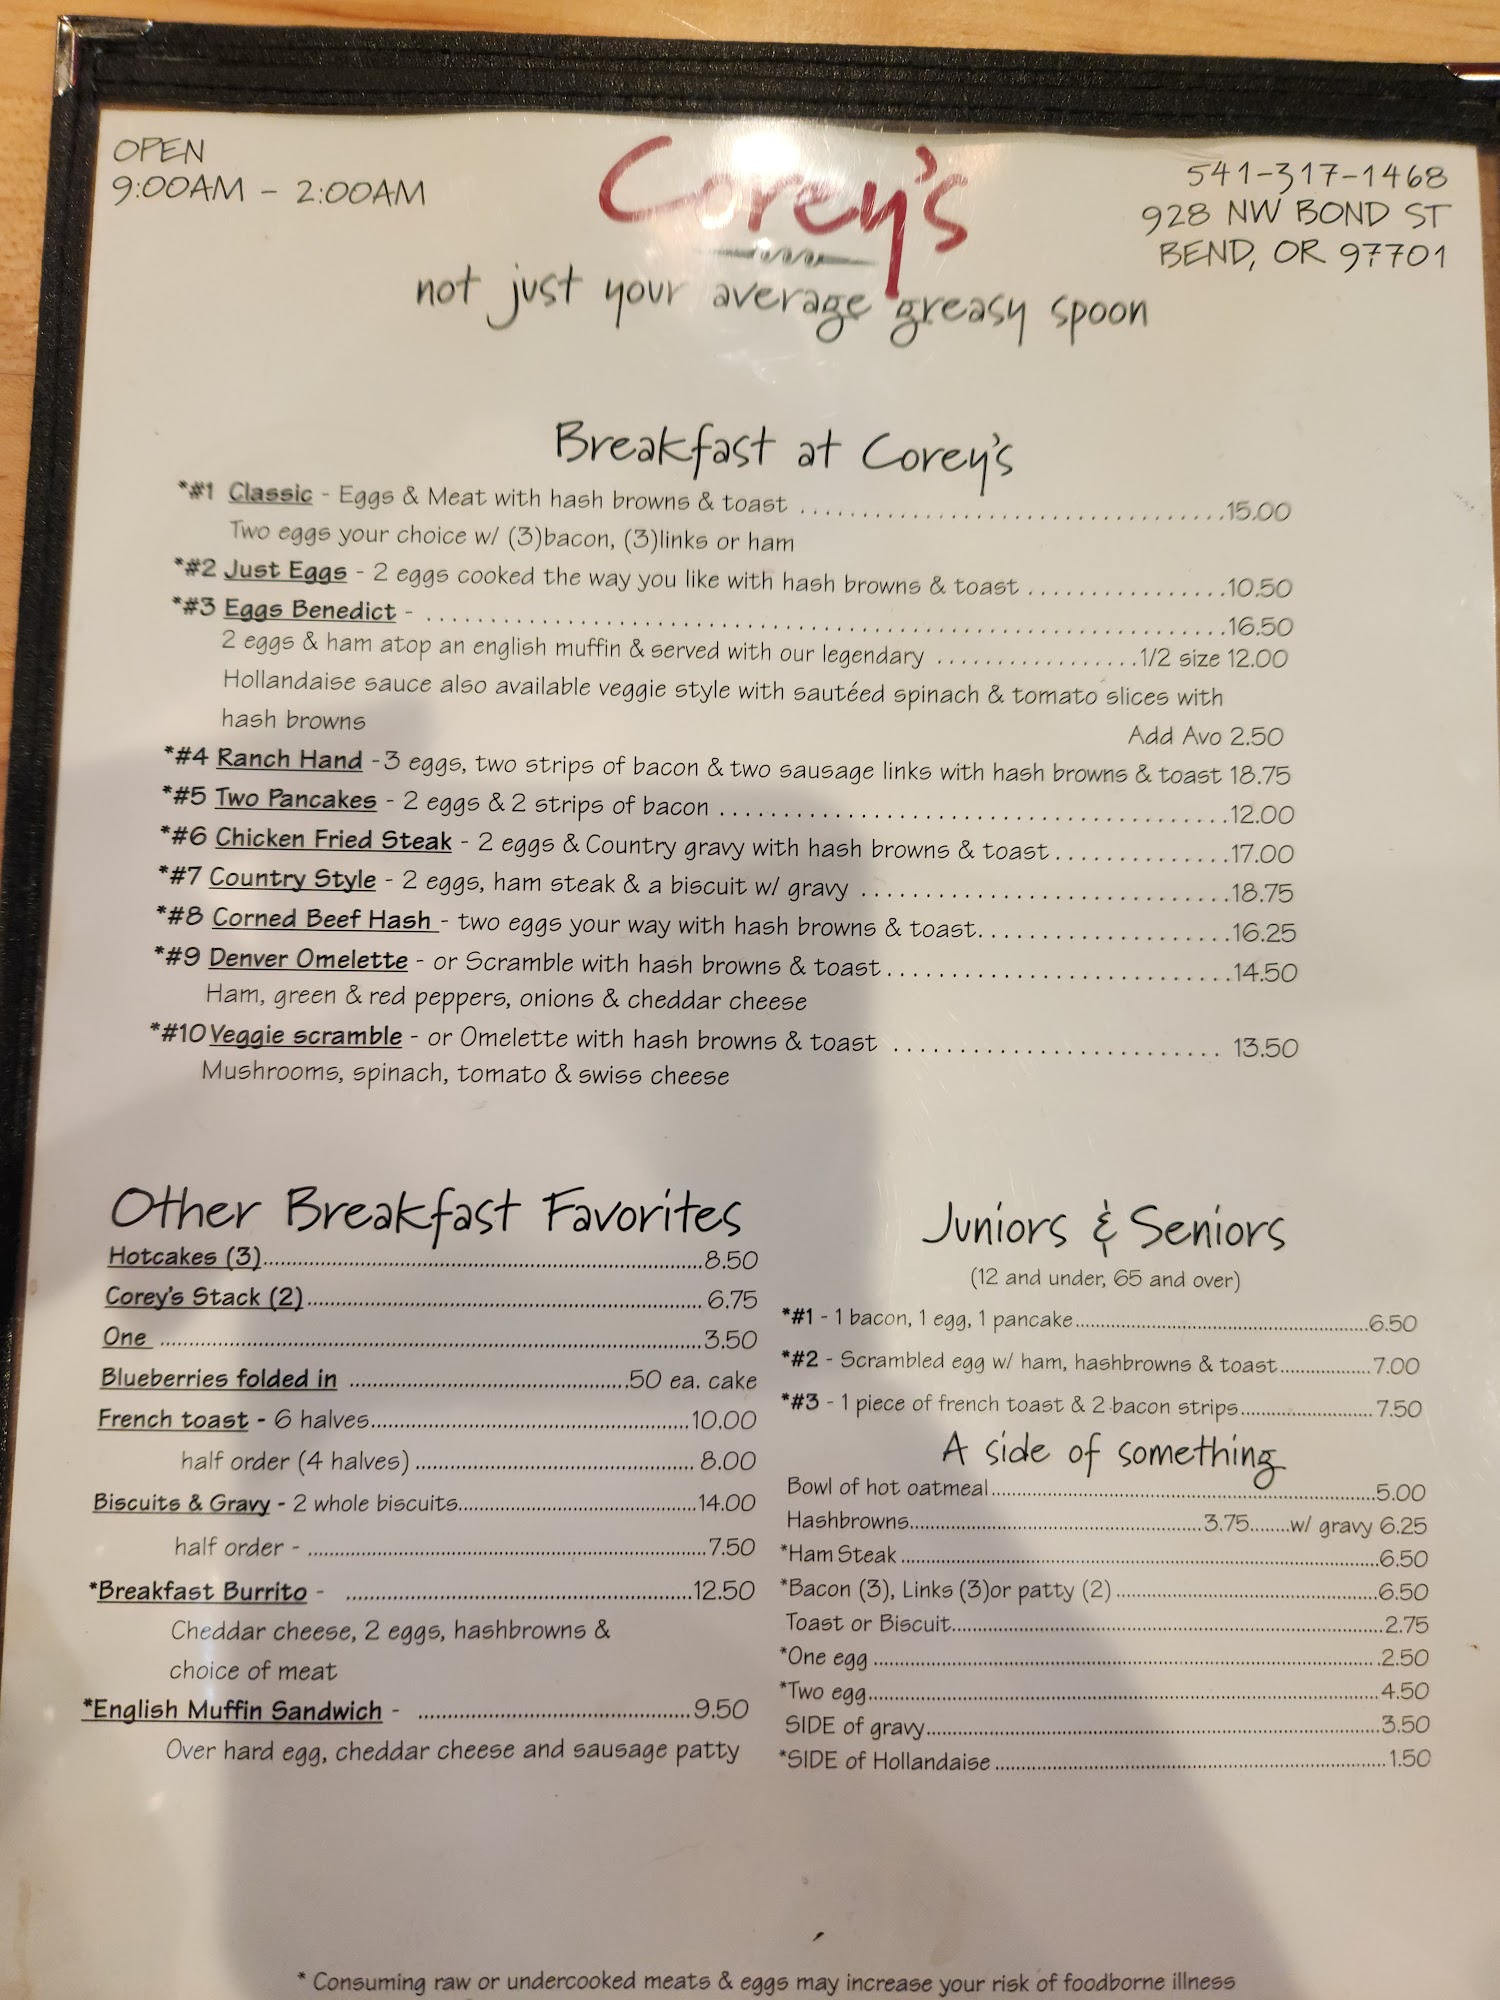 OPEN
9:00AM - 2:00AM
Corey's
541-317-1468
928 NW BOND ST
BEND, OR 97701
not just your average greasy spoon
Breakfast at Corey's
*#1 Classic - Eggs & Meat with hash browns & toast ..................................15.00
Two eggs your choice w/ (3)bacon, (3)links or ham
*#2 Just Eggs - 2 eggs cooked the way you like with hash browns & toast ................10.50
*#3 Eggs Benedict - ....................................................................16.50
2 eggs & ham atop an english muffin & served with our legendary ................1/2 size 12.00
Hollandaise sauce also available veggie style with sautéed spinach & tomato slices with
hash browns Add Avo 2.50
*#4 Ranch Hand -3 eggs, two strips of bacon & two sausage links with hash browns & toast 18.75
*#5 Two Pancakes - 2 eggs & 2 strips of bacon ..........................................12.00
*#6 Chicken Fried Steak - 2 eggs & Country gravy with hash browns & toast..............17.00
*#7 Country Style - 2 eggs, ham steak & a biscuit w/ gravy ..............................18.75
*#8 Corned Beef Hash - two eggs your way with hash browns & toast.....................16.25
*#9 Denver Omelette - or Scramble with hash browns & toast............................14.50
Ham, green & red peppers, onions & cheddar cheese
*#10 Veggie scramble - or Omelette with hash browns & toast ......................... 13.50
Mushrooms, spinach, tomato & swiss cheese
Other Breakfast Favorites
Hotcakes (3)..............................8.50
Corey's Stack (2)......................... 6.75
One ......................................3.50
Blueberries folded in ....................50 ea. cake
French toast - 6 halves...................10.00
half order (4 halves) .................... 8.00
Biscuits & Gravy - 2 whole biscuits.......14.00
half order - .............................7.50
*Breakfast Burrito - .....................12.50
Cheddar cheese, 2 eggs, hashbrowns &
choice of meat
*English Muffin Sandwich - ...............9.50
Over hard egg, cheddar cheese and sausage patty
Juniors & Seniors
(12 and under, 65 and over)
*#1 - 1 bacon, 1 egg, 1 pancake...........6.50
*#2 - Scrambled egg w/ ham, hashbrowns & toast.............7.00
*#3 - 1 piece of french toast & 2 bacon strips.............7.50
A side of something
Bowl of hot oatmeal.......................5.00
Hashbrowns................3.75........w/ gravy 6.25
*Ham Steak ...............................6.50
*Bacon (3), Links (3)or patty (2) ........6.50
Toast or Biscuit..........................2.75
*One egg .................................2.50
*Two egg..................................4.50
SIDE of gravy.............................3.50
*SIDE of Hollandaise .....................1.50
* Consuming raw or undercooked meats & eggs may increase your risk of foodborne illness